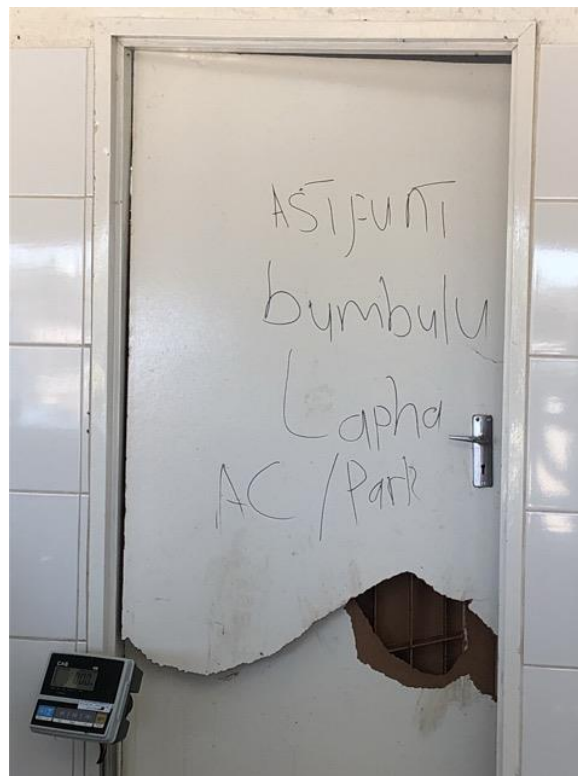 ASIFUNI
bumbulu
Lapha
AC/Park
CAS